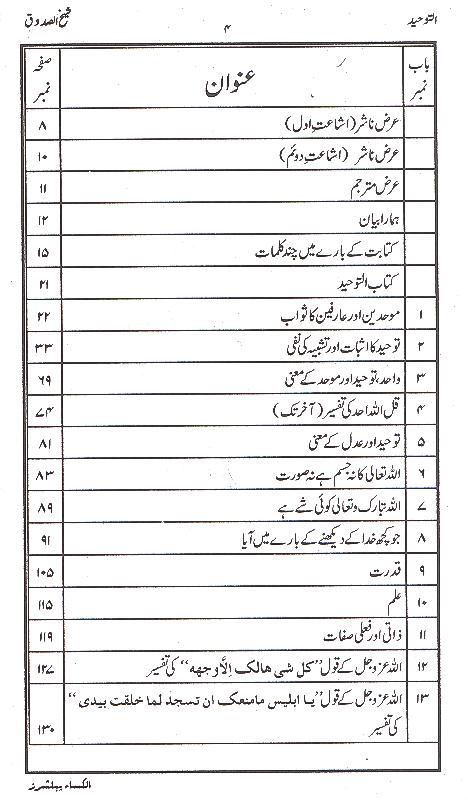 التوحید ۴ شیخ الصدوق
باب نمبر عنوان صفحہ نمبر
عرض ناشر (اشاعتِ اول) ۸
عرض ناشر (اشاعتِ دوئم) ۱۰
عرض مترجم ۱۱
ہمارا بیان ۱۲
کتابت کے بارے میں چند کلمات ۱۵
کتاب التوحید ۲۱
۱ موحدین اور عارفین کا ثواب ۲۲
۲ توحید کا اثبات اور تشبیہ کی نفی ۳۳
۳ واحد، توحید اور موحد کے معنی ۶۹
۴ قل اللہ احد کی تفسیر (آخر تک) ۷۴
۵ توحید اور عدل کے معنی ۸۱
۶ اللہ تعالی کا نہ جسم ہے نہ صورت ۸۳
۷ اللہ تبارک و تعالی کوئی شے ہے ۸۹
۸ جو کچھ خدا کے دیکھنے کے بارے میں آیا ۹۱
۹ قدرت ۱۰۵
۱۰ علم ۱۱۵
۱۱ ذاتی اور فعلی صفات ۱۱۹
۱۲ اللہ عزوجل کے قول “کل شی ھالک الاَّ وجھہ” کی تفسیر ۱۲۷
۱۳ اللہ عزوجل کے قول “یا ابلیس مامنعک ان تسجد لما خلقت بیدی”
کی تفسیر ۱۳۰
الکساء پبلشرز